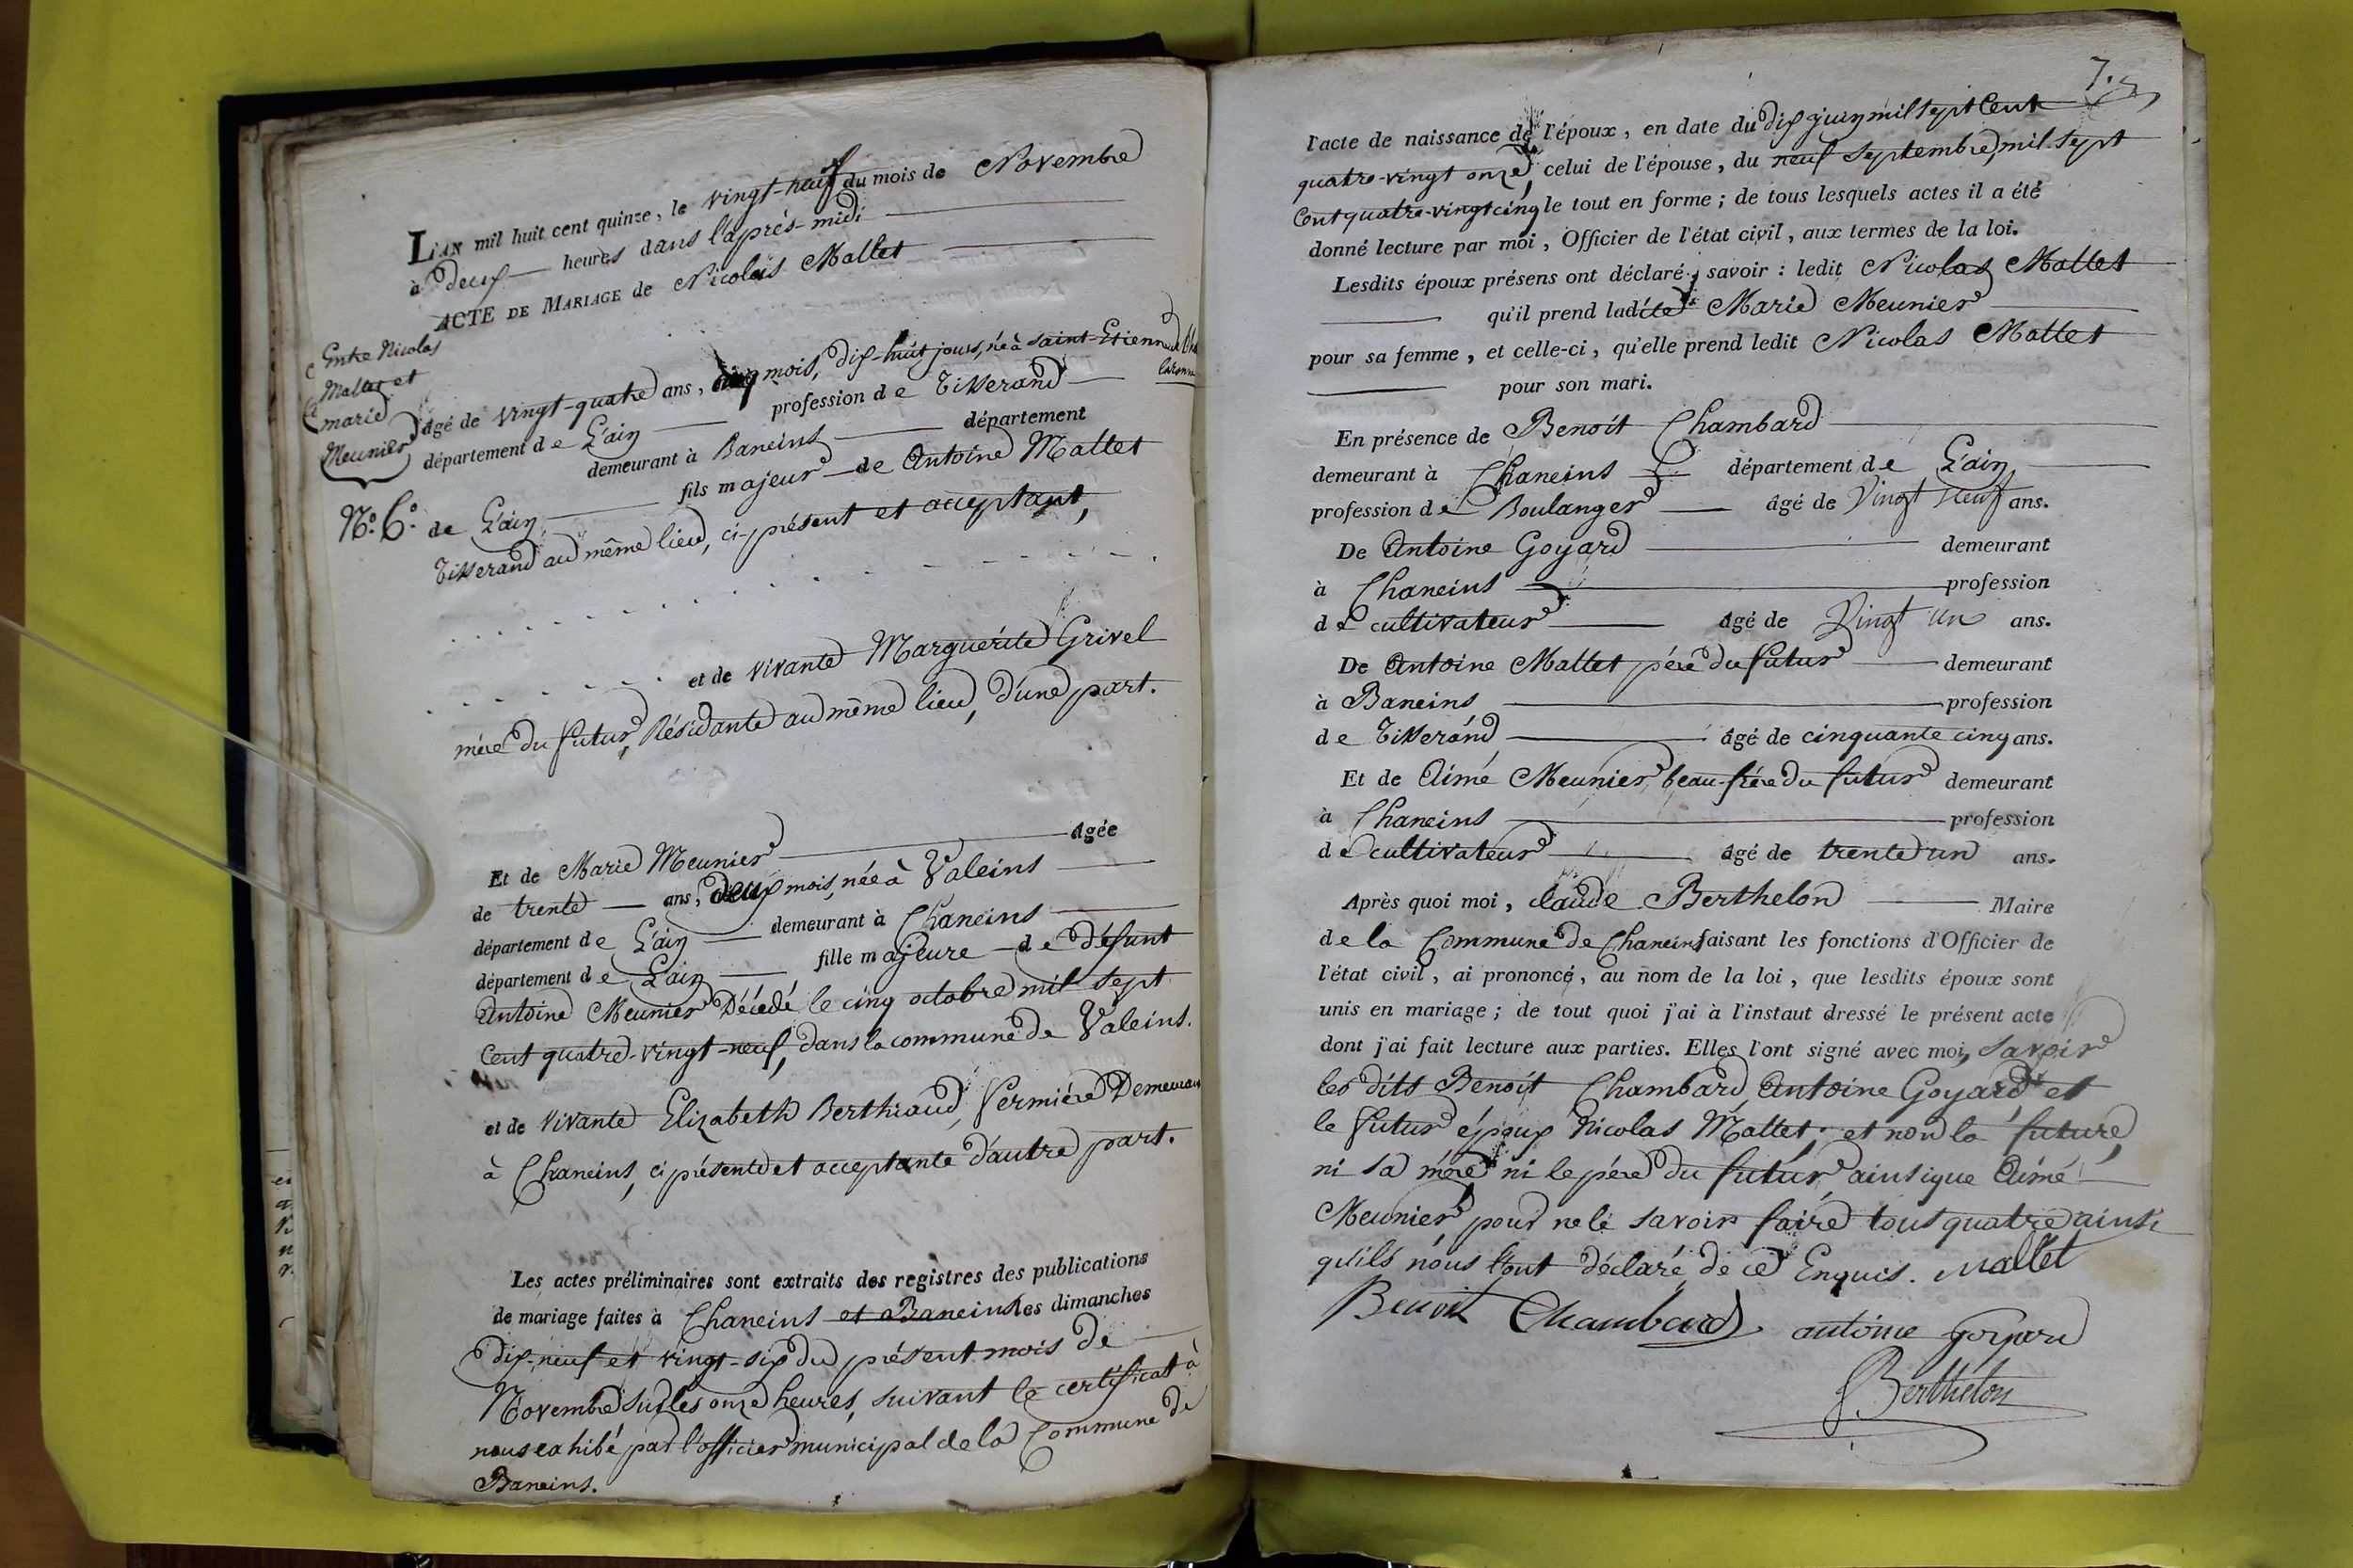 L'AN mil huit cent quinze, le vingt-neuf du mois de Novembre
à deux heures dans l'après-midi
ACTE DE MARIAGE de Nicolas Mallet
Entre Nicolas
Mallet et
marie
Meunier
N.o 6.o
âgé de vingt-quatre ans, cinq mois, dix-huit jours, né à saint-Etienne
département de L'ain profession de Tisserand
demeurant à Baneins département
de L'ain fils majeur de Antoine Mallet
Tisserand au même lieu, ci-présent et acceptant,
et de vivante Marguérite Grivel
mére du futur, Résidante au même lieu, d'une part.
Et de Marie Meunier âgée
de trente ans, deux mois, née à Valeins
département de L'ain demeurant à Chaneins
département de L'ain fille majeure de Défunt
Antoine Meunier Décédé le cinq octobre mil sept
Cent quatre-vingt-neuf, dans la commune de Valeins.
et de vivante Elizabeth Berthiaud, Fermiére Demeurant
à Chaneins, ci présente et acceptante d'autre part.
Les actes préliminaires sont extraits des registres des publications
de mariage faites à Chaneins et à Baneins les dimanches
Dix-neuf et vingt-six du présent mois de
Novembre sur les onze heures, suivant le certificat à
nous exhibé par l'officier municipal de la Commune de
Baneins.
7.
l'acte de naissance de l'époux, en date du dix juin mil sept Cent
quatre-vingt onze, celui de l'épouse, du neuf septembre, mil sept
Cent quatre-vingt cinq le tout en forme ; de tous lesquels actes il a été
donné lecture par moi, Officier de l'état civil, aux termes de la loi.
Lesdits époux présens ont déclaré, savoir : ledit Nicolas Mallet
qu'il prend ladite Marie Meunier
pour sa femme, et celle-ci, qu'elle prend ledit Nicolas Mallet
pour son mari.
En présence de Benoit Chambard
demeurant à Chaneins département de L'ain
profession de Boulanger âgé de Vingt neuf ans.
De Antoine Goyard demeurant
à Chaneins profession
de cultivateur âgé de Vingt un ans.
De Antoine Mallet pére du futur demeurant
à Baneins profession
de Tisserand âgé de cinquante cinq ans.
Et de Aimé Meunier, beau-frére du futur demeurant
à Chaneins profession
de cultivateur âgé de trente un ans.
Après quoi moi, claude Berthelon Maire
de la Commune de Chaneins faisant les fonctions d'Officier de
l'état civil, ai prononcé, au nom de la loi, que lesdits époux sont
unis en mariage ; de tout quoi j'ai à l'instaut dressé le présent acte
dont j'ai fait lecture aux parties. Elles l'ont signé avec moi, savoir
les dits Benoit Chambard, Antoine Goyard et
le futur époux Nicolas Mallet ; et non la future,
ni sa mére ni le pére du futur, ainsi que Aimé
Meunier, pour ne le savoir faire tous quatre ainsi
qu'ils nous l'ont déclaré de ce Enquis. Mallet
Benoit Chambard antoine goyard
Berthelon